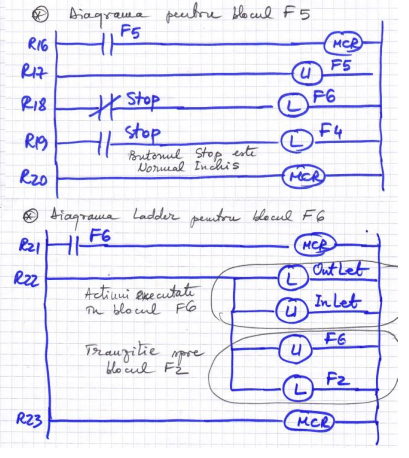 ⊗ Diagrama pentru blocul F5
R16 F5 MCR
R17 U F5
R18 Stop L F6
R19 Stop L F4
Butonul Stop este
Normal Inchis
R20 MCR
⊗ Diagrama Ladder pentru blocul F6
R21 F6 MCR
R22 L OutLet
Actiuni executate
U InLet
in blocul F6
Tranzitie spre U F6
blocul F2
L F2
R23 MCR